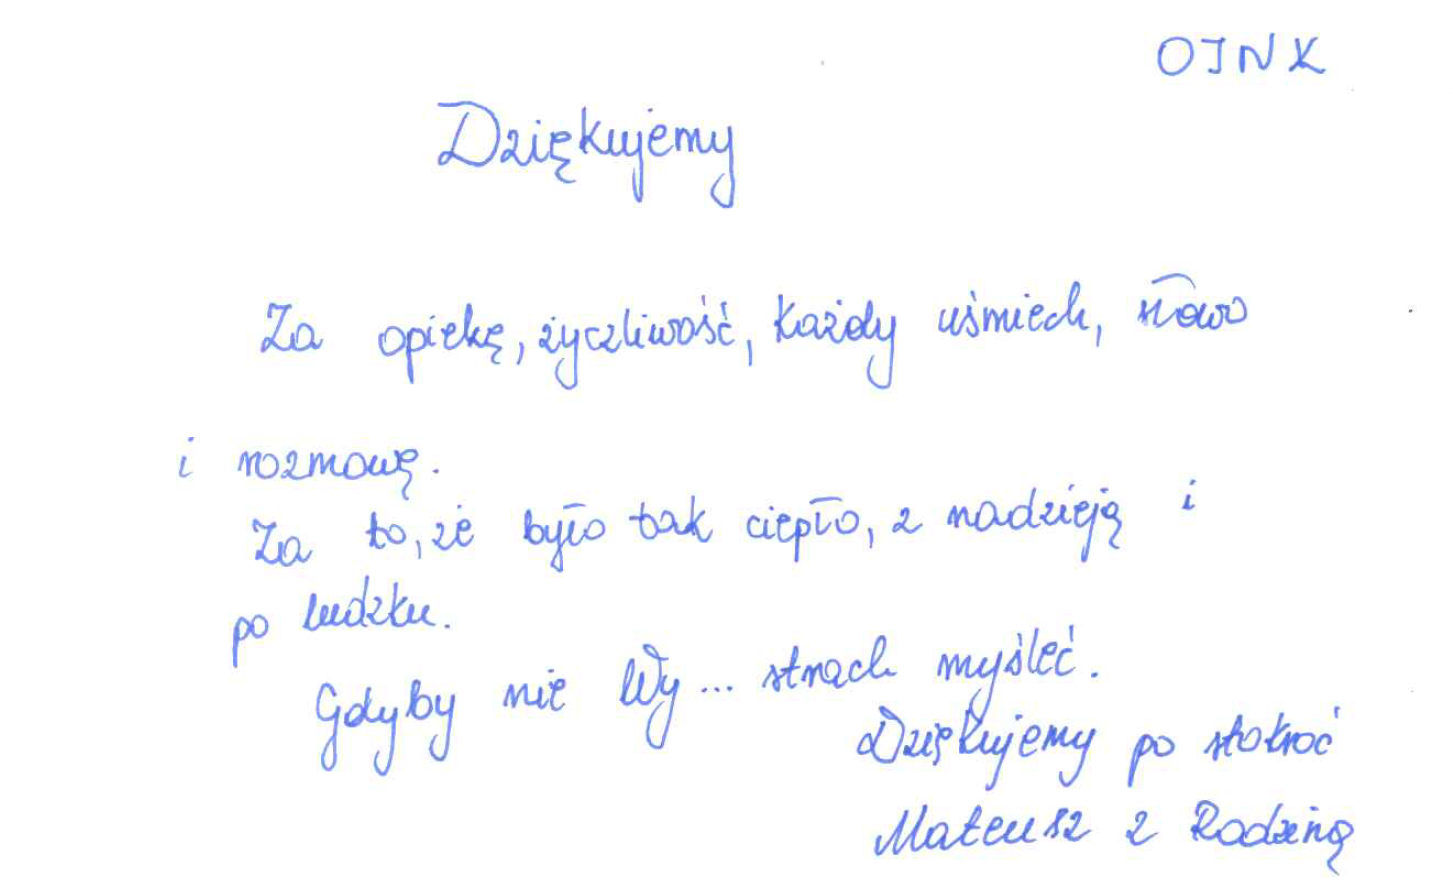 OJNK
Dziękujemy
Za opiekę, życzliwość, każdy uśmiech, słowo
i rozmowę.
Za to, że było tak ciepło, z nadzieją i
po ludzku.
Gdyby nie Wy... strach myśleć.
Dziękujemy po stokroć
Mateusz z Rodziną